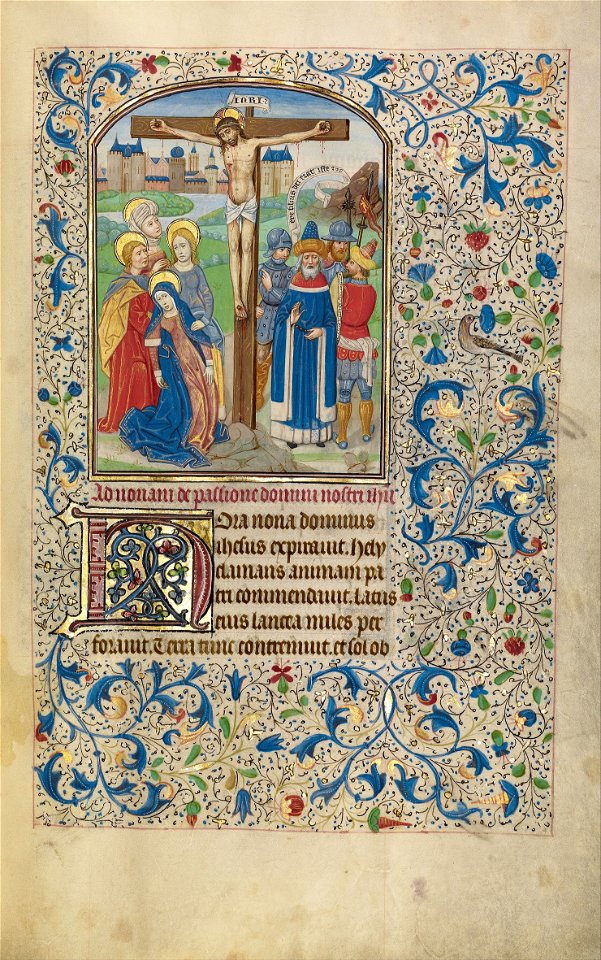 INRI
vere filius dei erat iste
Ad nonam de passione domini nostri ihu
Hora nona dominus
ihesus expiravit. hely
clamans animam pa
tri commendavit. Latus
eius lancea miles per
foravit. Terra tunc contremuit. et sol ob